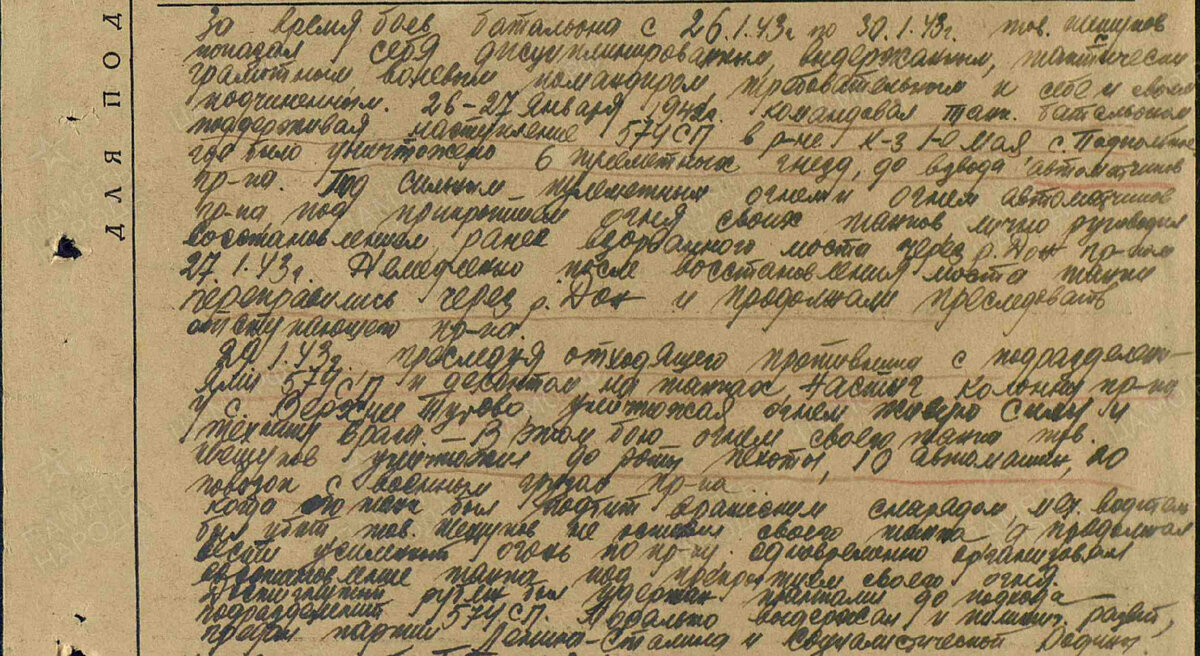 ДЛЯ ПОД
За время боев батальона с 26.1.43г. по 30.1.43г. тов.
показал себя дисциплинированным, выдержанным, тактически
грамотным волевым командиром, требовательным к себе и своим
подчиненным. 26-27 января командовал танк. батальоном
поддерживая наступление 574 СП в р-не к-з 1-е Мая с.
где было уничтожено 6 пулеметных гнезд, до взвода автоматчиков
пр-ка. Под сильным пулеметным огнем и огнем автоматчиков
пр-ка под прикрытием огня своих танков лично руководил
восстановлением ранее взорванного моста через р. Дон пр-ком
27.1.43г. Немедленно после восстановления моста танки
переправились через р. Дон и продолжали преследовать
отступающего пр-ка.
29.1.43г. преследуя отходящего противника с подразделен-
ями 574 СП и десантом на танках, настиг колонну пр-ка
у с. Верхнее Турово, уничтожая огнем живую силу и
технику врага. — В этом бою огнем своего танка тов.
уничтожил до роты пехоты, 10 автомашин, 20
повозок с военным грузом пр-ка.
Когда его танк был подбит вражеским снарядом, мех. водитель
был убит тов. не оставил своего танка, а продолжал
вести усиленный огонь по пр-ку. Одновременно организовал
восстановление танка под своего огня.
Достигнутый рубеж был удержан танками до подхода
подразделений 574 СП. Морально выдержан и политич. развит,
предан партии Ленина-Сталина и социалистической Родине.